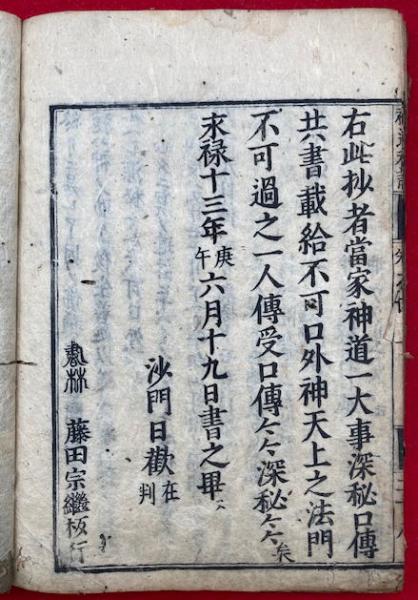 右此抄者當家神道一大事深秘口傳
共書載給不可口外神天上之法門
不可過之一人傳受口傳々々深秘々々矣
永禄十三年庚午六月十九日書之畢
沙門日歡在判
藤田宗繼板行